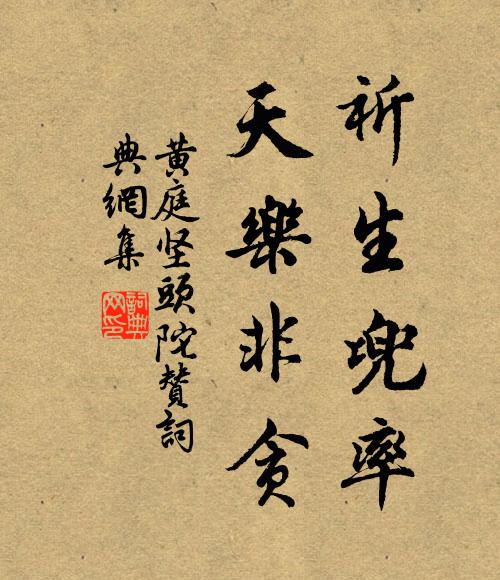 祈生兜率
天樂非貪
黄庭坚頭陀贊詞
典網集
詞典
网印